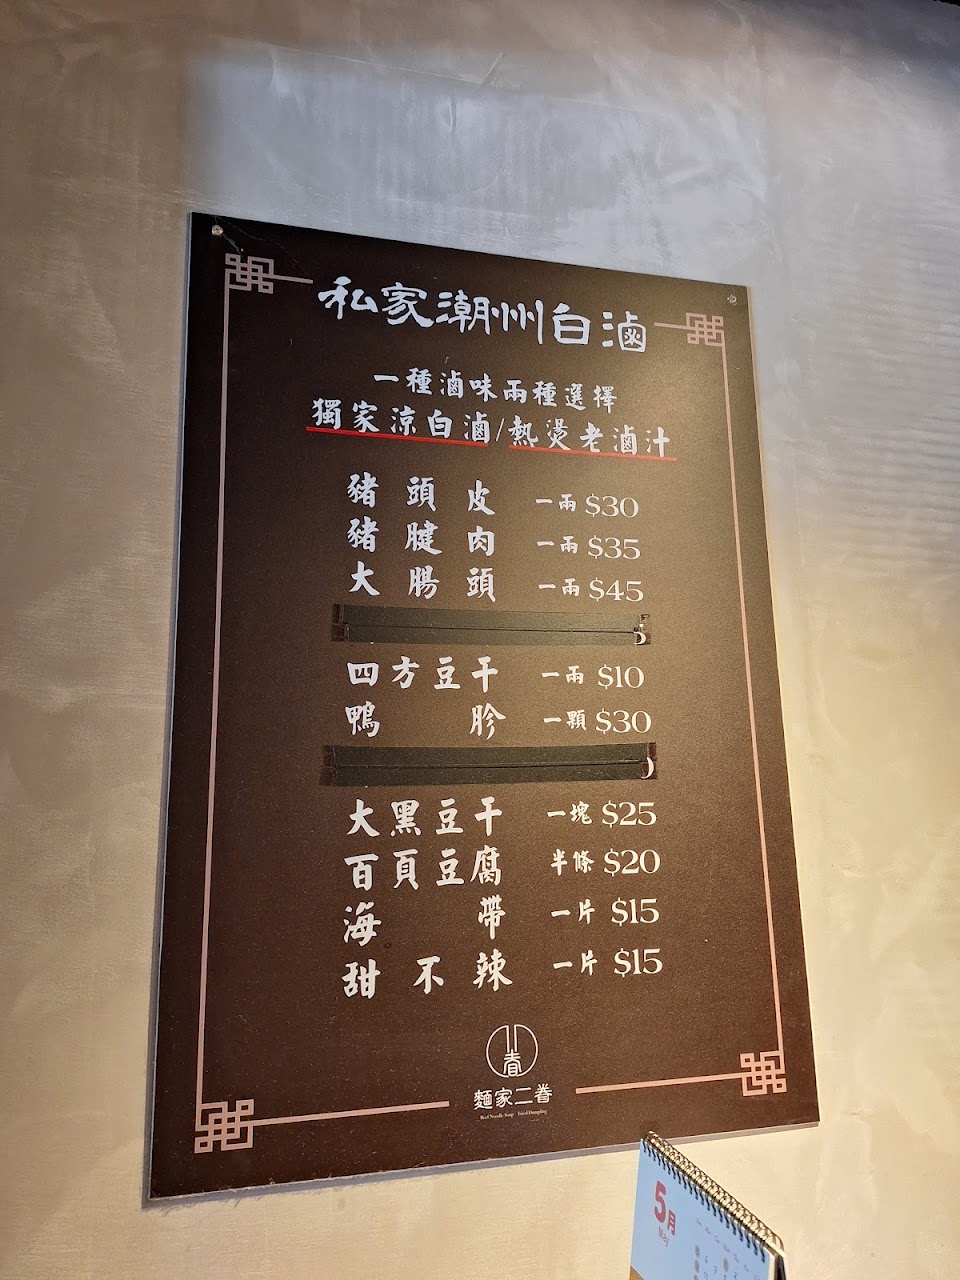 私家潮州白滷
一種滷味兩種選擇
獨家涼白滷/熱燙老滷汁
豬頭皮 一兩 $30
豬腱肉 一兩 $35
大腸頭 一兩 $45
四方豆干 一兩 $10
鴨胗 一顆 $30
大黑豆干 一塊 $25
百頁豆腐 半條 $20
海帶 一片 $15
甜不辣 一片 $15
二眷
麵家二眷
Beef Noodle Soup Fried Dumpling
5月
May